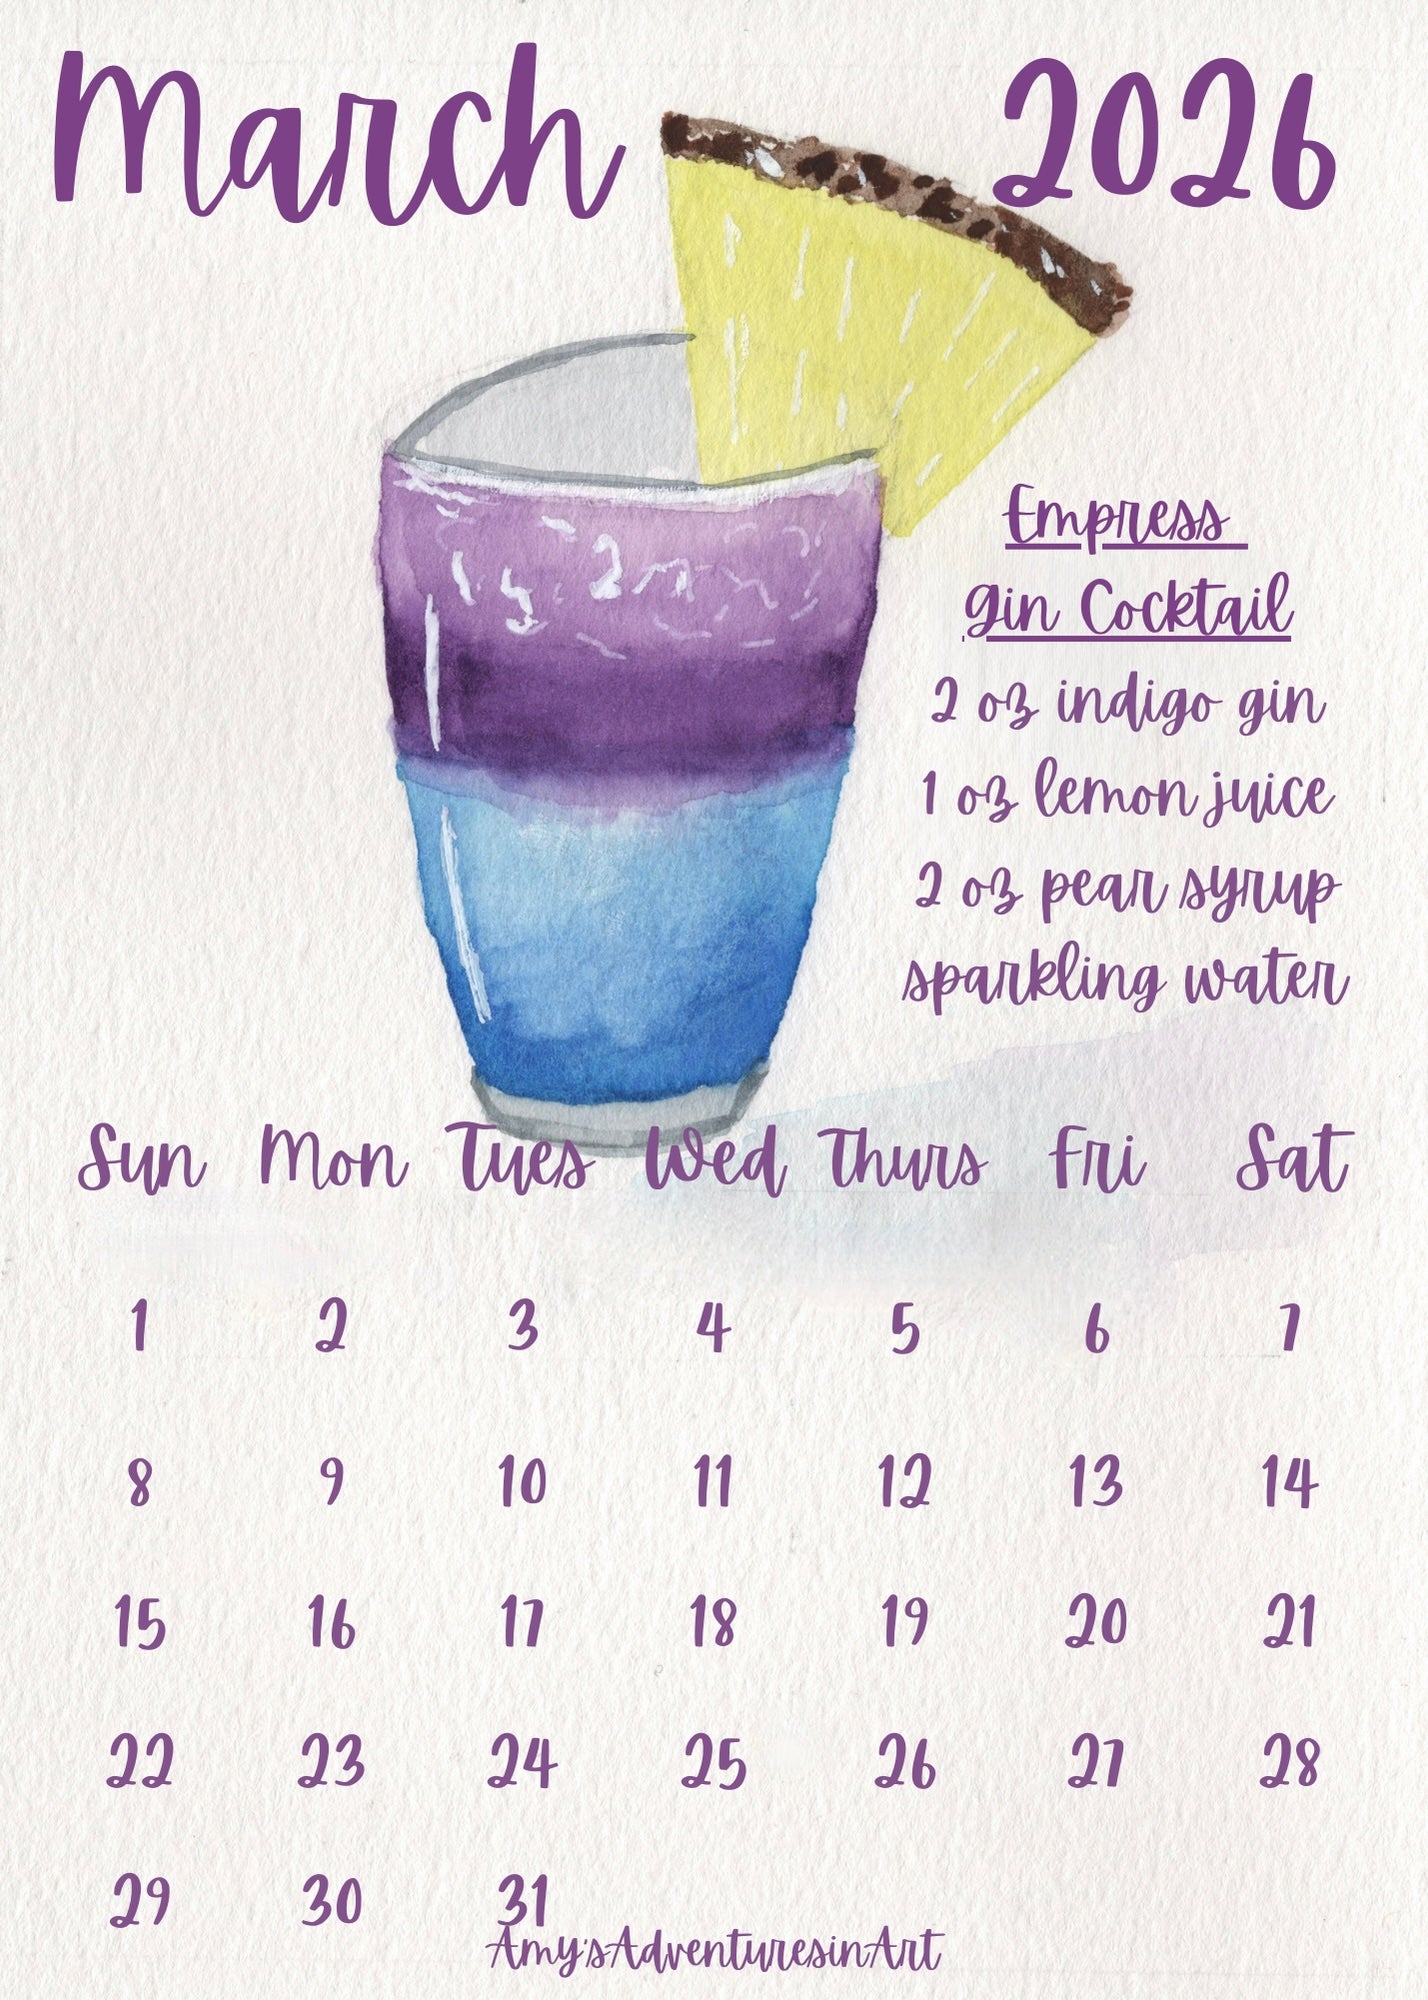 March 2026
Empress
Gin Cocktail
2 oz indigo gin
1 oz lemon juice
2 oz pear syrup
sparkling water
Sun Mon Tues Wed Thurs Fri Sat
1 2 3 4 5 6 7
8 9 10 11 12 13 14
15 16 17 18 19 20 21
22 23 24 25 26 27 28
29 30 31
Amy'sAdventuresinArt